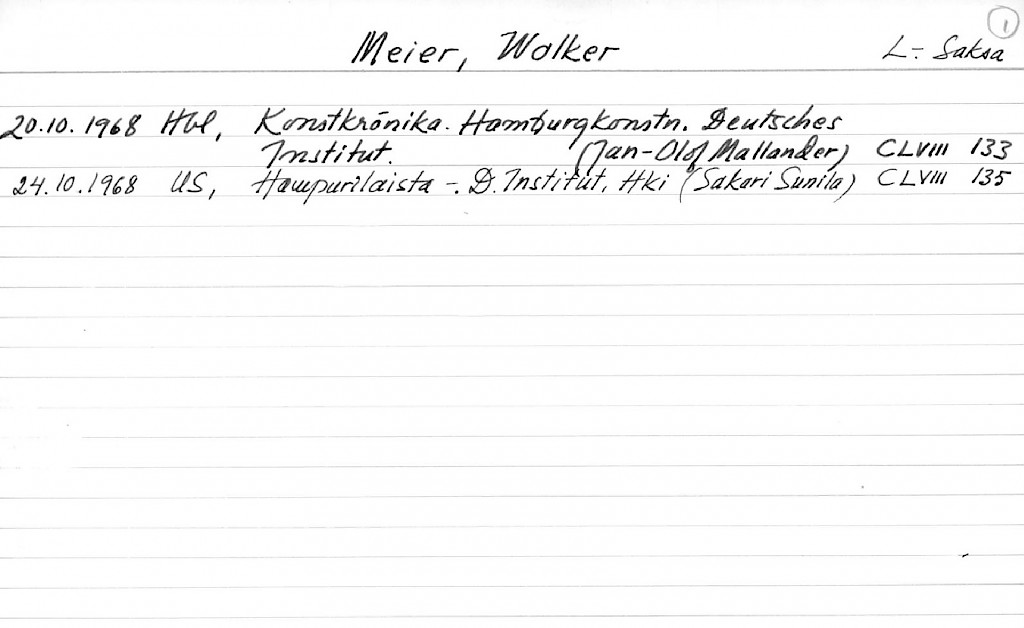 1
Meier, Wolker L-Saksa
20.10.1968 Hbl, Konstkrönika. Hamburgkonstn. Deutsches
Institut. (Jan-Olof Mallander) CLVIII 133
24.10.1968 US, Hampurilaista -. D. Institut, Hki (Sakari Sunila) CLVIII 135